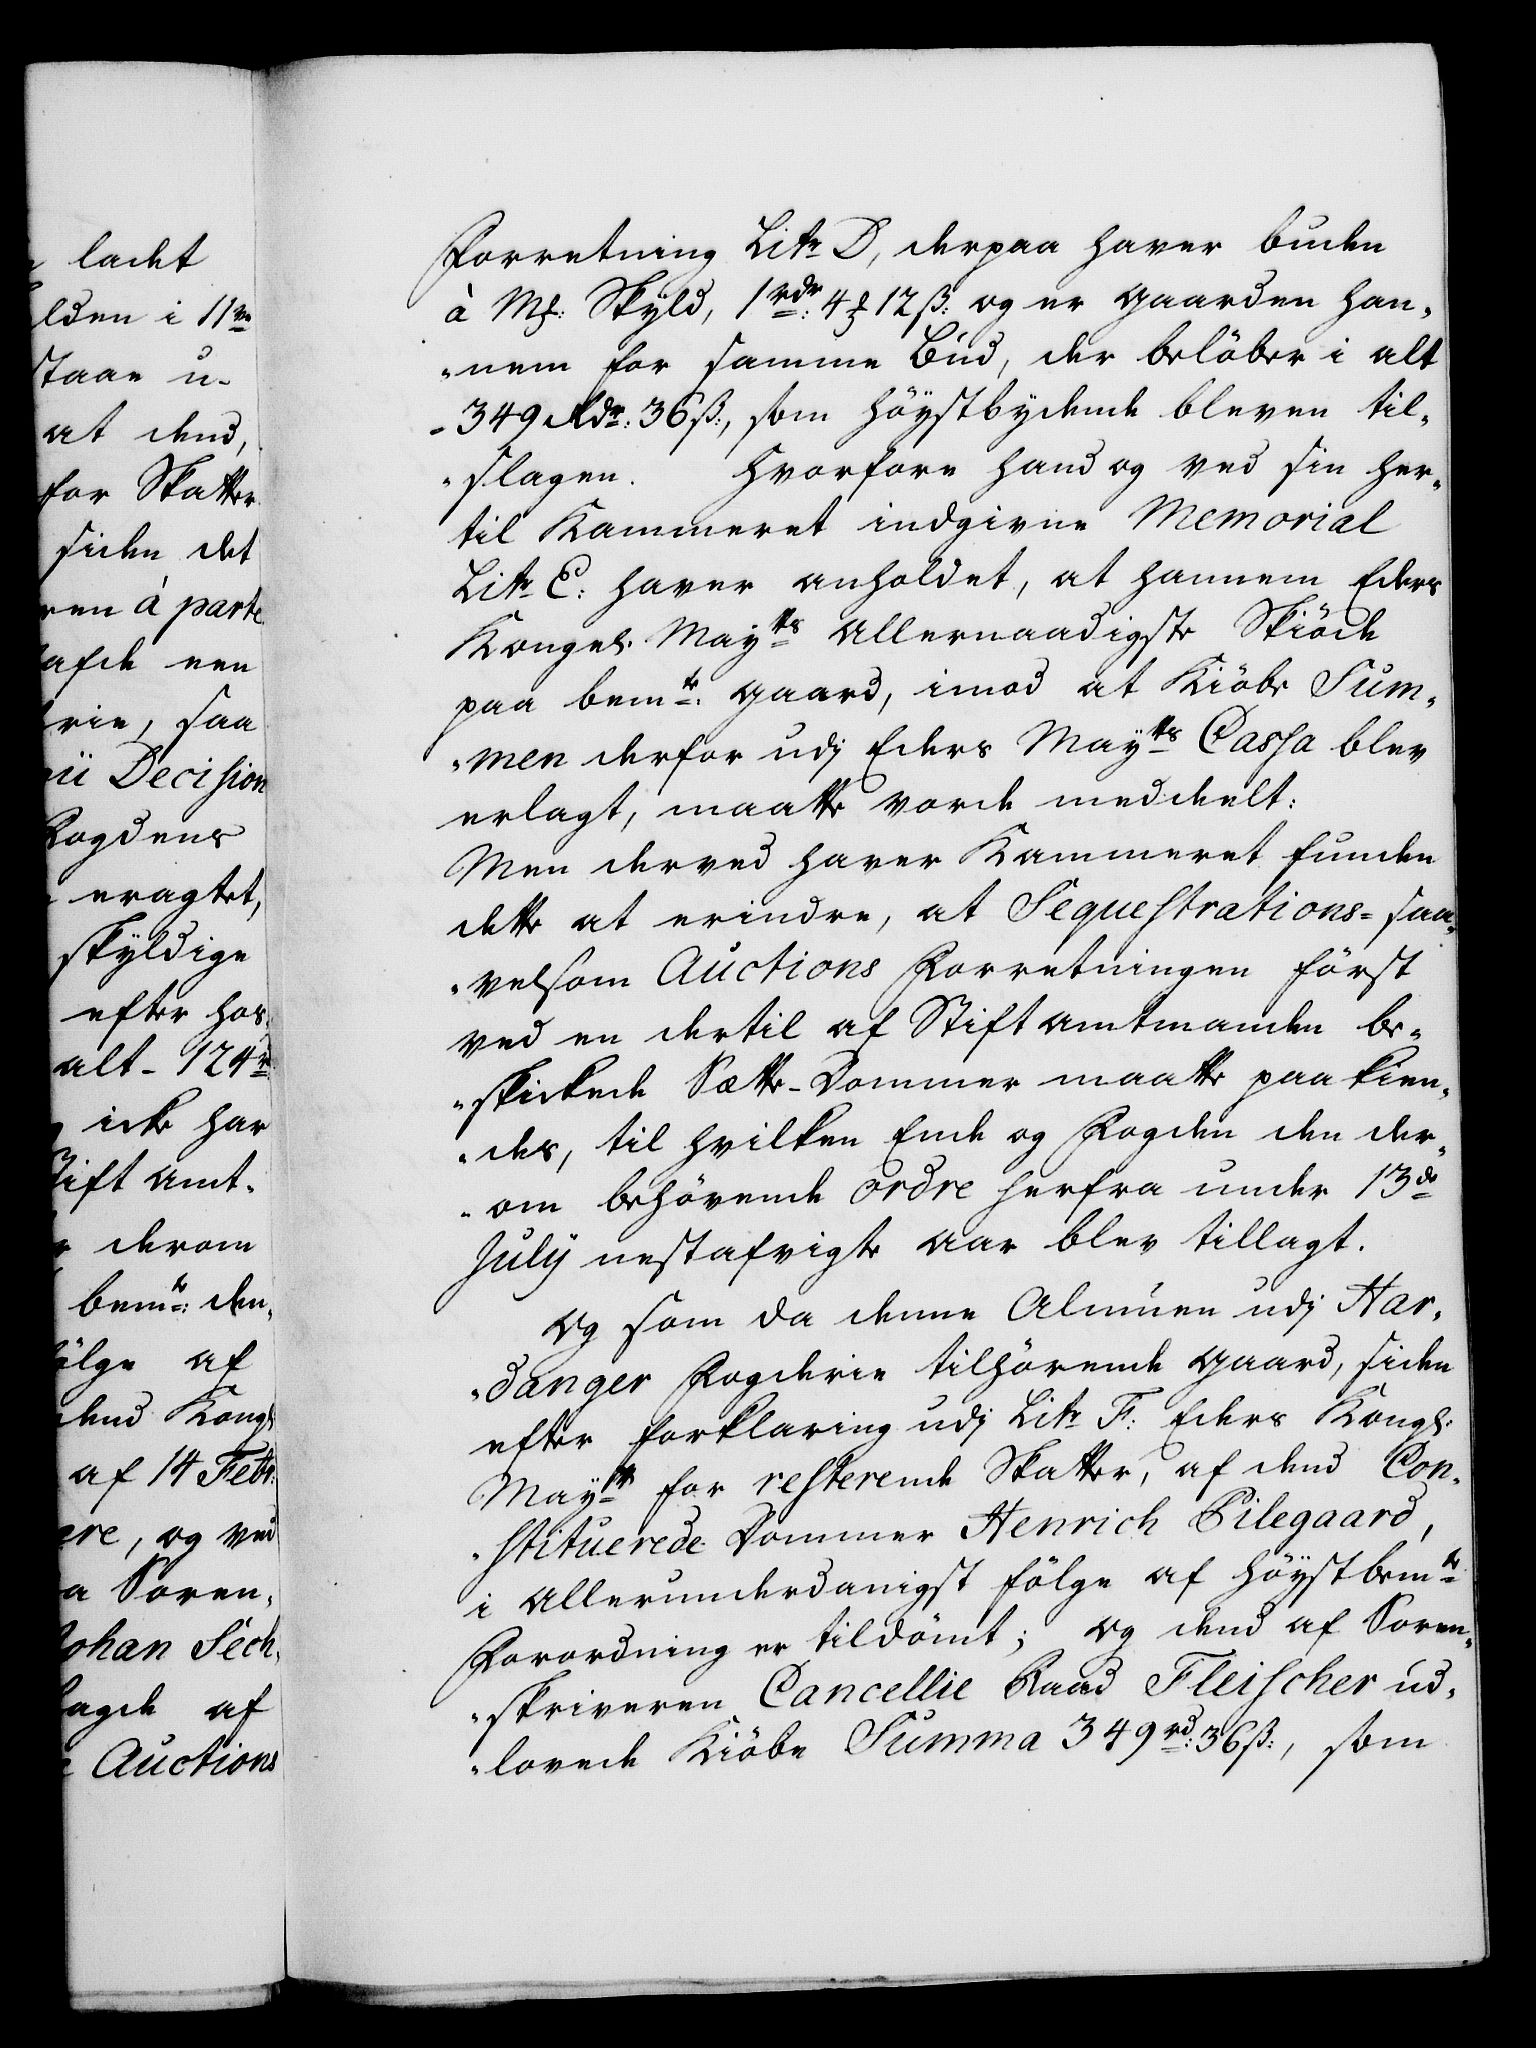 ladet
lden i 11ve
staae u-
at dend,
for Skatter
siden det
ren à parte
afde een
rie, saa
ii Decision
Fogdens
eragtet,
skÿldige
efter hos
alt - 124r
icke har
Stift Amt-
derom
bemte: den,
fölge af
dend Kongl
af 14 Febr:
ere, og ved
a Soren,
Johan Sech,
lagde af
Auctions
Forretning Litr D, derpaa haver buden
à Mk: Skÿld, 1rdr: 4 ℔ 12 ß: og er Gaarden han,
"nem for samme Bud, der belöber i alt
- 349 Rdr: 36 ß:, som höÿstbÿdende bleven til,
"slagen. Hvorfore hand og ved sin her,
til Kammeret indgivne Memorial
Litr E: haver anholdet, at hannem Eders
Kongel: Maÿtts Allernaadigste Skiöde
paa bemte: Gaard, imod at Kiöbe Sum,
"men derfor udj Eders Maÿtts Cassa blev
erlagt, maatte vorde meddeelt:
Men derved haver Kammeret funden
dette at erindre, at Sequestrations- saa,
"velsom Auctions Forretningen först
ved en dertil af Stiftamtmanden be,
"skickede Sætte-Dommer maatte paakien,
"des, til hvilken Ende og Fogden den der,
"om behövende ordre herfra under 13de
Julÿ nestafvigte Aar blev tillagt.
Og som da denne Almuen udj Har,
"danger Fogderie tilhörende Gaard, siden
efter forklaring udj Litr F: Eders Kongl:
Maÿtt for resterende Skatter, af dend Con,
"stituerede Dommer Henrich Pilegaard,
i Allerunderdanigst fölge af höÿstbemte
Forordning er tildömt; Og dend af Soren,
"skriveren Cancellie Raad Fleischer ud,
"lovede Kiöbe Summa 349 rd: 36 ß:, som